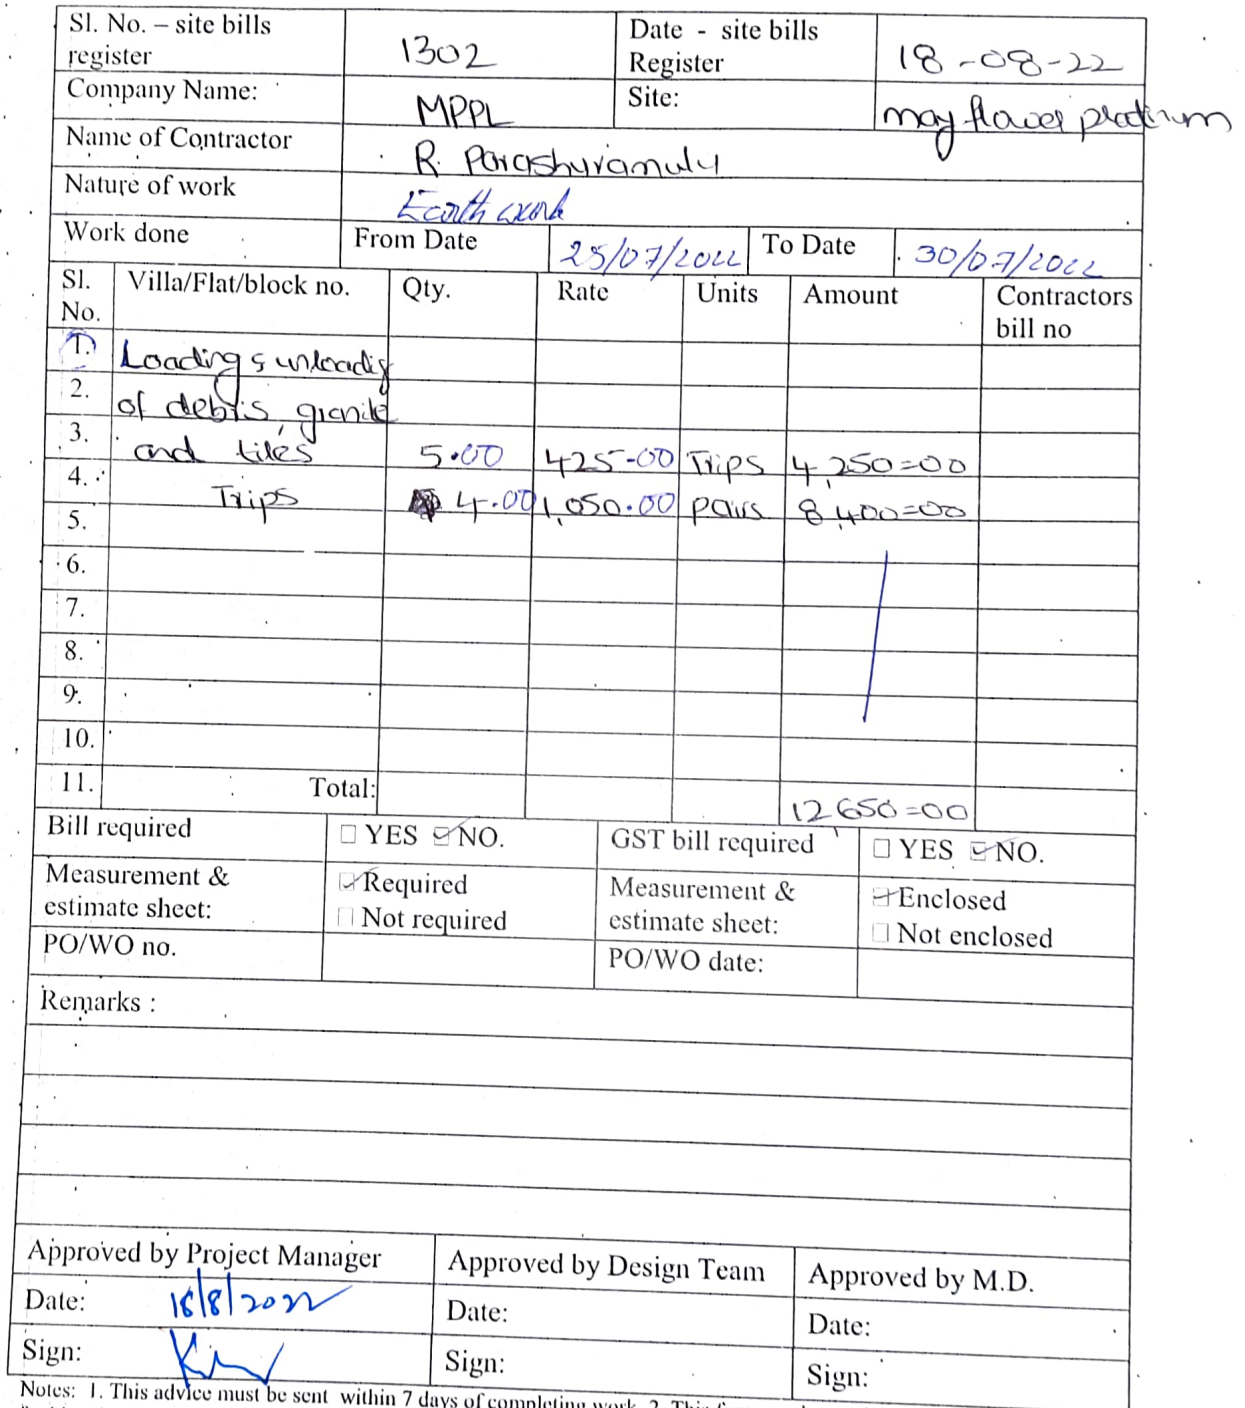 Sl. No. – site bills register 1302 Date - site bills Register 18-08-22
Company Name: MPPL Site: may flower platinum
Name of Contractor R. Parashuramulu
Nature of work Earth work
Work done From Date 25/07/2022 To Date 30/07/2022
Sl. No. Villa/Flat/block no. Qty. Rate Units Amount Contractors bill no
1. Loading & unloadig
2. of debris, granite
3. and tiles 5.00 425-00 Trips 4,250=00
4. Trips 4.00 1,050.00 pairs 8,400=00
5.
6.
7.
8.
9.
10.
11. Total: 12650=00
Bill required ☐ YES ☑ NO. GST bill required ☐ YES ☑ NO.
Measurement & estimate sheet: ☑ Required ☐ Not required Measurement & estimate sheet: ☑ Enclosed ☐ Not enclosed
PO/WO no. PO/WO date:
Remarks :
Approved by Project Manager Approved by Design Team Approved by M.D.
Date: 18/8/2022 Date: Date:
Sign: Sign: Sign:
Notes: 1. This advice must be sent within 7 days of completing work. 2. This